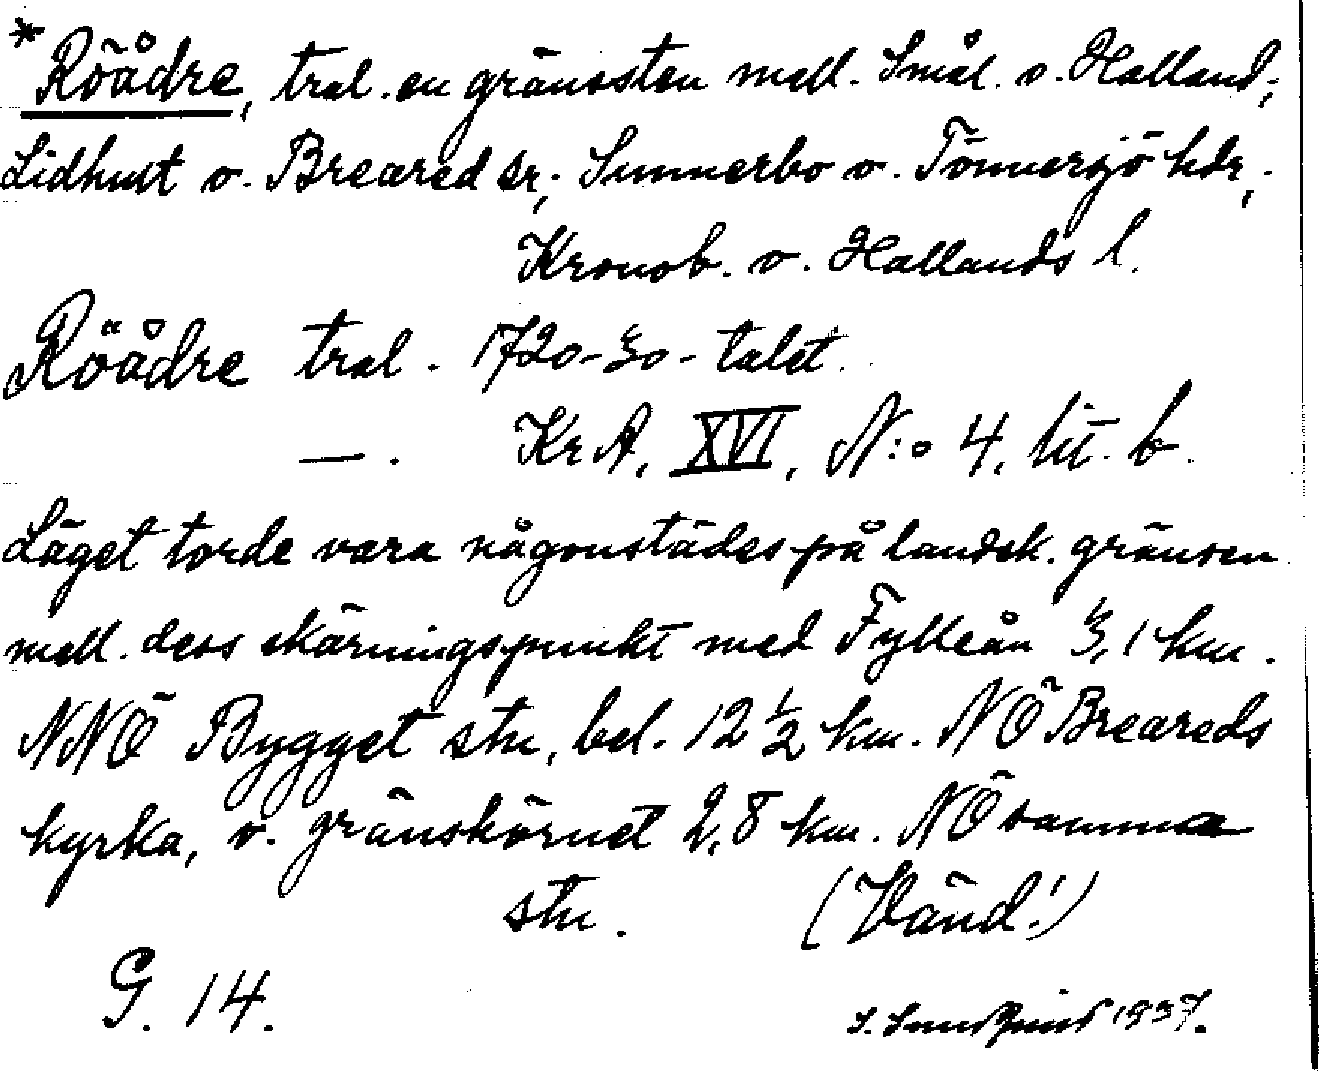 *Röådre, trol. en gränssten mell. Smål. o. Halland;
Lidhult o. Breared sr; Sunnerbo o. Tönnersjö hdr,
Kronob. o. Hallands l.
Röådre trol. 1720-30-talet.
—. KrA, XVI, N:o 4, lit. b.
Läget torde vara någonstädes på landsk. gränsen
mell. dess skärningspunkt med Fylleån 3,1 km.
NNÖ Bygget stn, bel. 12 1/2 km. NÖ Breareds
kyrka, o. gränshörnet 2,8 km. NÖ samma
stn. (Vänd!)
G. 14.
1937.